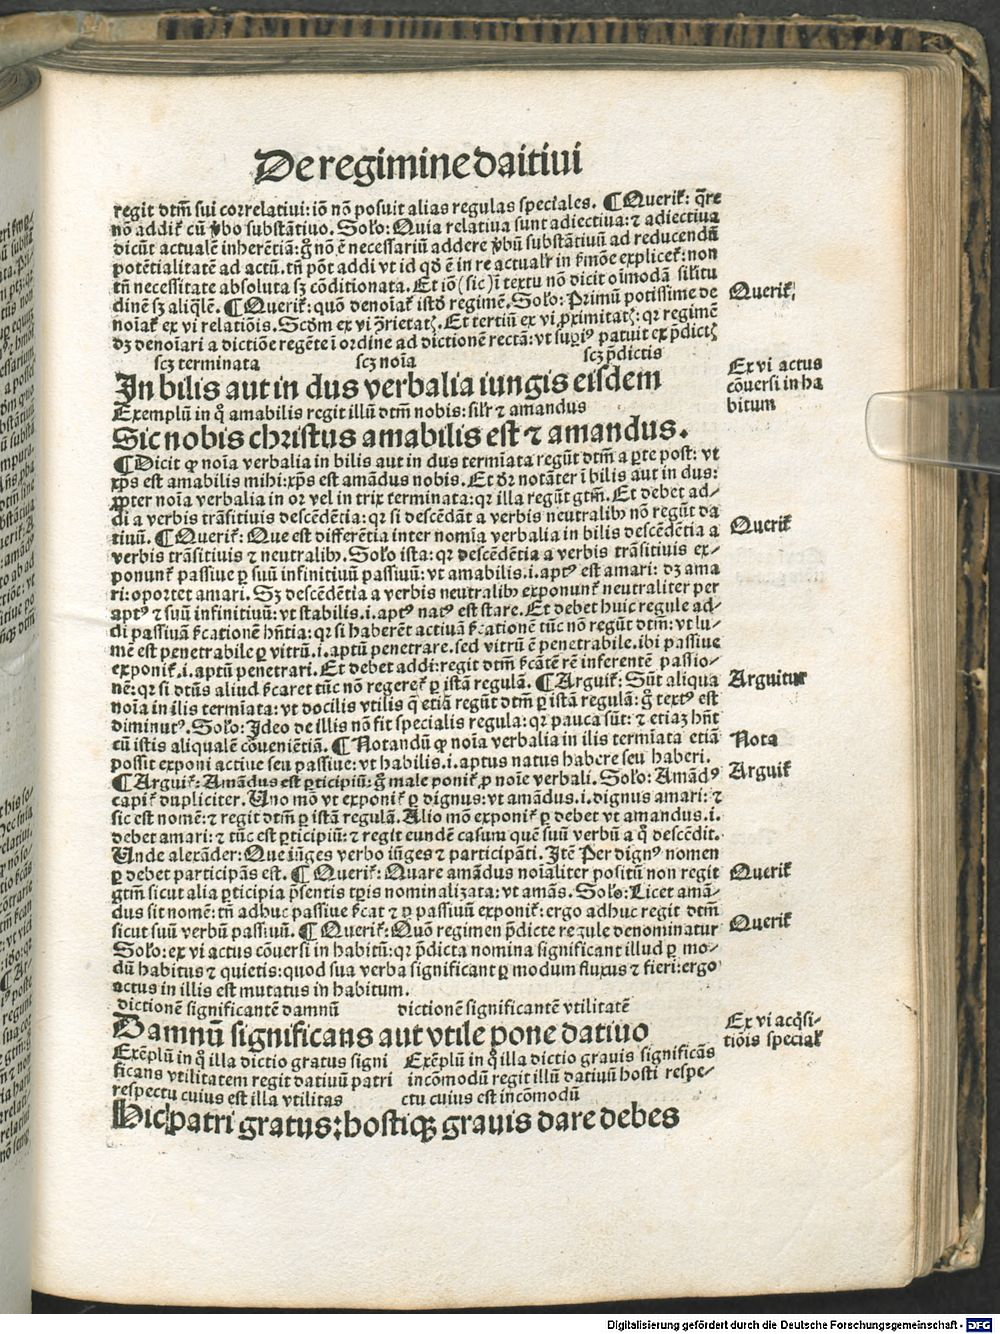 De regimine daitiui
regit dtm̄ sui correlatiui: iō nō posuit alias regulas speciales. ¶ Queriꝶ: q̄re
nō addiꝶ cū v̓bo substātiuo. Solo: Quia relatiua sunt adiectiua: ⁊ adiectiua
dicūt actualē inherētiā: g̊ nō ē necessariū addere v̓bū substātiuū ad reducendū
potētialitatē ad actū. tn̄ pōt addi vt id qd̓ ē in re actualr̓ in ẜmōe explicet̓: non
tn̄ necessitate absoluta sꝫ cōditionata. Et iō (sic) ī textu nō dicit oīmodā sil̓itu
dinē sꝫ aliq̄lē. ¶ Queriꝶ: quō denoīaꝶ istd̓ regimē. Solo: Primū potissime de
noīaꝶ ex vi relatiōis. Scd̓m ex vi ꝯ̄rietatꝭ. Et tertiū ex vi ꝓximitatꝭ: qꝛ regimē
dꝫ denoīari a dictiōe regēte ī ordine ad dictionē rectā: vt supiꝰ patuit ex p̄dictꝭ
scꝫ terminata scꝫ noīa scꝫ p̄dictis
In bilis aut in dus verbalia iungis eisdem
Exemplū in q̊ amabilis regit illū dtm̄ nobis: silr̓ ⁊ amandus
Sic nobis christus amabilis est ⁊ amandus.
¶ Dicit ꝙ noīa verbalia in bilis aut in dus termīata regūt dtm̄ a ꝑte post: vt
xp̄s est amabilis mihi: xp̄s est amādus nobis. Et dr̄ notāter ī bilis aut in dus:
ꝓpter noīa verbalia in or vel in trix terminata: qꝛ illa regūt gtm̄. Et debet ad⸗
di a verbis trāsitiuis descēdētia: qꝛ si descēdāt a verbis neutralibꝰ nō regūt da
tiuū. ¶ Queriꝶ: Que est differētia inter nomīa verbalia in bilis descēdētia a
verbis trāsitiuis ⁊ neutralibꝰ. Solo ista: qꝛ descēdētia a verbis trāsitiuis ex⸗
ponunꝶ passiue ꝑ suū infinitiuū passiuū: vt amabilis .i. aptꝰ est amari: dꝫ ama
ri: oportet amari. Sꝫ descēdētia a verbis neutralibꝰ exponunꝶ neutraliter per
aptꝰ ⁊ suū infinitiuū: vt stabilis .i. aptꝰ natꝰ est stare. Et debet huic regule ad⸗
di passiuā ẜcationē hn̄tia: qꝛ si haberēt actiuā ẜcationē tūc nō regūt dtm̄: vt lu⸗
mē est penetrabile ꝑ vitrū .i. aptū penetrare. sed vitrū ē penetrabile. ibi passiue
exponiꝶ .i. aptū penetrari. Et debet addi: regit dtm̄ ẜcātē rē inferentē passio⸗
nē: qꝛ si dtūs aliud ẜcaret tūc nō regereꝶ ꝑ istā regulā. ¶ Arguiꝶ: Sūt aliqua
noīa in ilis termīata: vt docilis vtilis q̄ etiā regūt dtm̄ ꝑ istā regulā: g̊ textꝰ est
diminutꝰ. Solo: Ideo de illis nō fit specialis regula: qꝛ pauca sūt: ⁊ etiaꝫ hn̄t
cū istis aliqualē cōueniētiā. ¶ Notandū ꝙ noīa verbalia in ilis termīata etiā
possit exponi actiue seu passiue: vt habilis .i. aptus natus habere seu haberi.
¶ Arguiꝶ: Amādus est ꝑticipiū: g̊ male poniꝶ ꝓ noīe verbali. Solo: Amādꝰ
capiꝶ dupliciter. Uno mō vt exponiꝶ ꝑ dignus: vt amādus .i. dignus amari: ⁊
sic est nomē: ⁊ regit dtm̄ ꝑ istā regulā. Alio mō exponiꝶ ꝑ debet vt amandus .i.
debet amari: ⁊ tūc est ꝑticipiū: ⁊ regit eundē casum quē suū verbū a q̊ descēdit.
Unde alexāder: Que iūges verbo iūges ⁊ participāti. Itē Per dignꝰ nomen
ꝑ debet participās est. ¶ Queriꝶ: Quare amādus noīaliter positū non regit
gtm̄ sicut alia ꝑticipia p̄sentis tꝑis nominalizata: vt amās. Solo: Licet amā⸗
dus sit nomē: tn̄ adhuc passiue ẜcat ⁊ ꝑ passiuū exponiꝶ: ergo adhuc regit dtm̄
sicut suū verbū passiuū. ¶ Queriꝶ: Quō regimen p̄dicte regule denominatur
Solo: ex vi actus cōuersi in habitū: qꝛ p̄dicta nomina significant illud ꝑ mo⸗
dū habitus ⁊ quietis: quod sua verba significant ꝑ modum fluxus ⁊ fieri: ergo
actus in illis est mutatus in habitum.
dictionē significantē damnū dictionē significantē vtilitatē
Damnū significans aut vtile pone datiuo
Exēplū in q̊ illa dictio gratus signi
ficans vtilitatem regit datiuū patri
respectu cuius est illa vtilitas
Exēplū in q̊ illa dictio grauis significās
incōmodū regit illū datiuū hosti respe⸗
ctu cuius est incōmodū
Hic patri gratus: hostiqꝫ grauis dare debes
Queriꝶ
Ex vi actus
cōuersi in ha
bitum
Queriꝶ
Arguitur
Nota
Arguiꝶ
Queriꝶ
Queriꝶ
Ex vi acq̇si⸗
tiōis specialꝭ
Digitalisierung gefördert durch die Deutsche Forschungsgemeinschaft - DFG